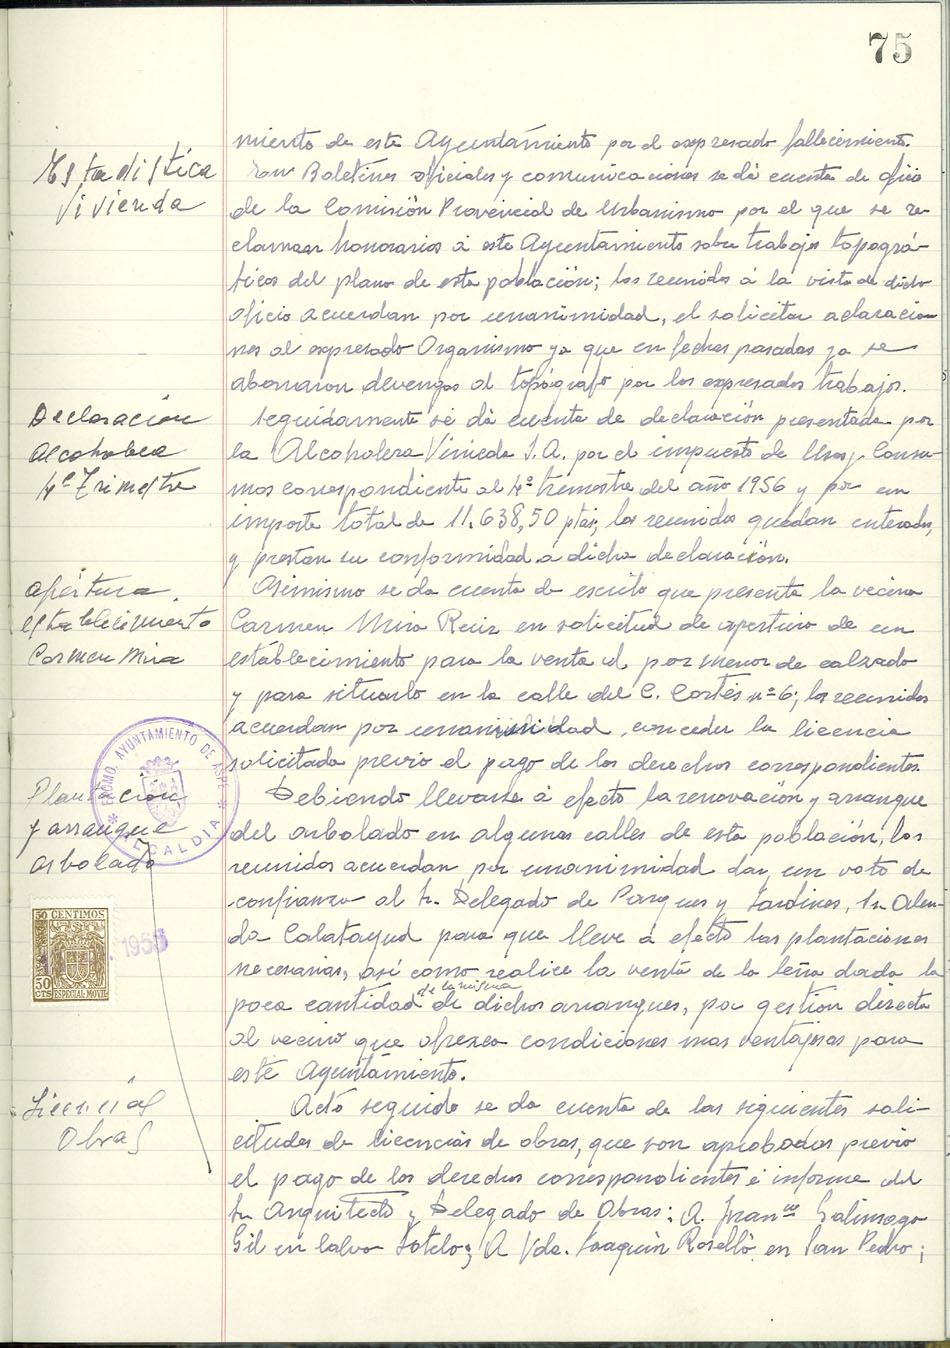 75
miento de este Ayuntamiento por el expresado fallecimiento.
Estadistica
Vivienda
Boletines oficiales y comunicaciones se dá cuenta de oficio
de la Comisión Provincial de Urbanismo por el que se re-
claman honorarios á este Ayuntamiento sobre trabajos topográ-
ficos del plano de esta población; los reunidos á la vista de dicho
oficio acuerdan por unanimidad, el solicitar aclaracio
nes al expresado Organismo ya que en fechas pasadas ya se
abonaron devengos al topógrafo por los expresados trabajos.
Declaración
Alcoholera
4º Trimestre
Seguidamente se dá cuenta de declaración presentada por
la Alcoholera Vinicola S.A. por el impuesto de Usos y Consu-
mos correspondiente al 4º trimestre del año 1956 y por un
importe total de 11.638,50 ptas; los reunidos quedan enterados,
y prestan su conformidad a dicha declaración.
Apertura
establecimiento
Carmen Mira
Asimismo se da cuenta de escrito que presenta la vecina
Carmen Mira Ruiz en solicitud de apertura de un
establecimiento para la venta al por menor de calzado
y para situarlo en la calle del C. Cortés nº 6; los reunidos
acuerdan por unanimidad, conceder la licencia
solicitada previo el pago de los derechos correspondientes.
EXCMO. AYUNTAMIENTO DE ASPE
ALCALDIA
Plantación
y arranque
arbolado
Debiendo llevarse á efecto la renovación y arranque
del arbolado en algunas calles de esta población, los
reunidos acuerdan por unanimidad dar, un voto de
confianza al Sr. Delegado de Parques y Jardines, Sr. Alen-
da Calatayud para que lleve á efecto las plantaciones
necesarias, así como realice la venta de la leña dada la
poca cantidad de la misma de dichos arranques, por gestión directa
al vecino que ofrezca condiciones mas ventajosas para
este Ayuntamiento.
50 CENTIMOS
50
CTS
ESPECIAL MOVIL
1956
Licencias
Obras
Acto seguido se da cuenta de las siguientes soli-
citudes de licencias de obras, que son aprobadas previo
el pago de los derechos correspondientes é informe del
Sr. Arquitecto y Delegado de Obras: A. Franco Galinsoga
Gil en Calvo Sotelo; A Vda. Joaquín Roselló en San Pedro;